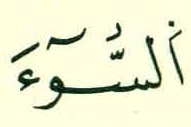 ا۬لسُّوٓءَ